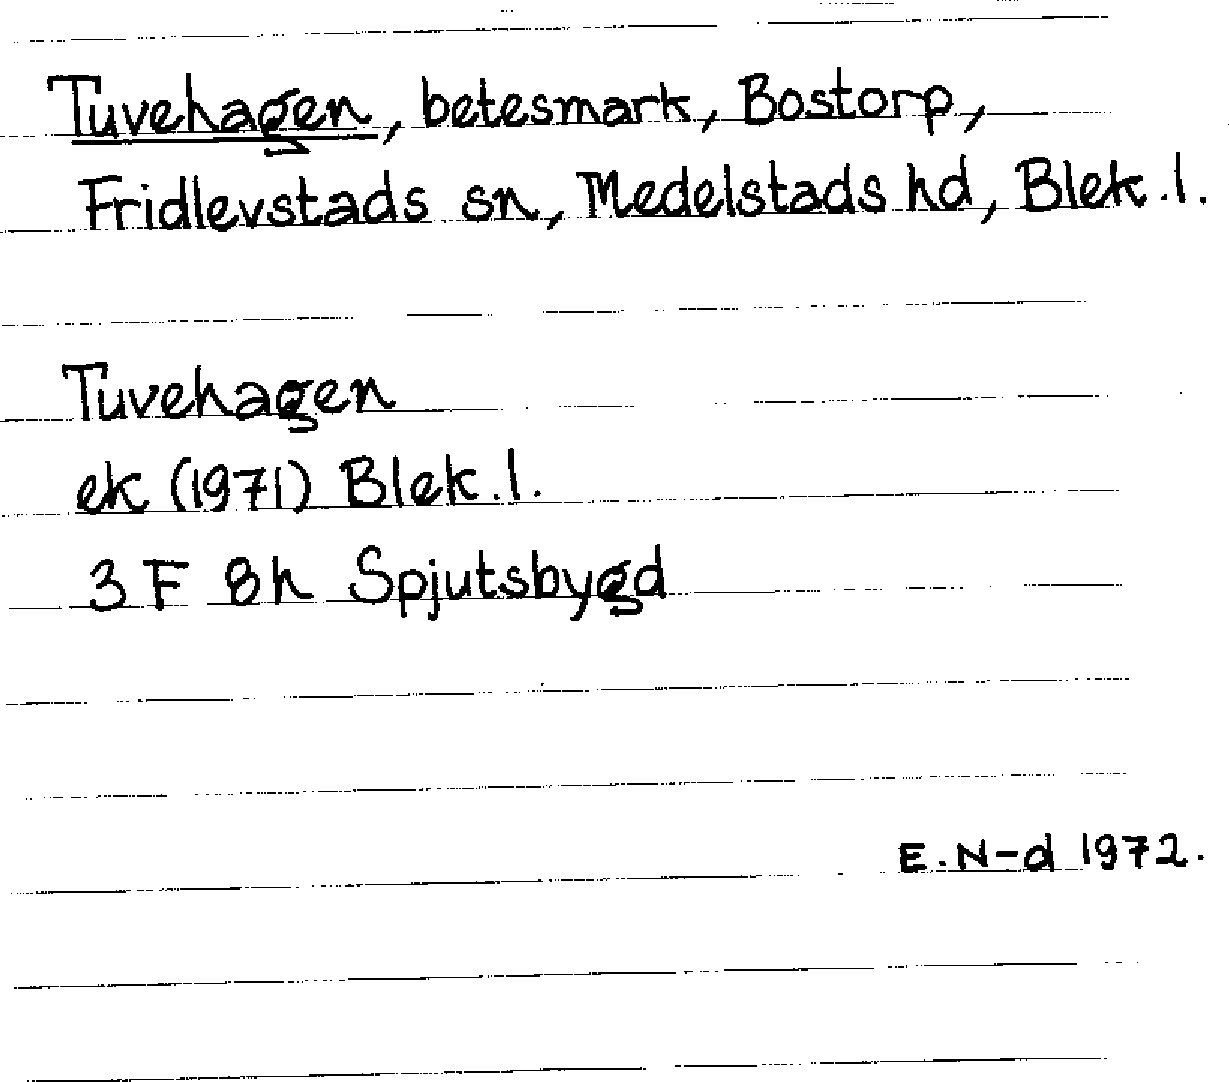 Tuvehagen, betesmark, Bostorp,
Fridlevstads sn, Medelstads hd, Blek. l.
Tuvehagen
ek (1971) Blek. l.
3 F 8h Spjutsbygd
E. N-d 1972.